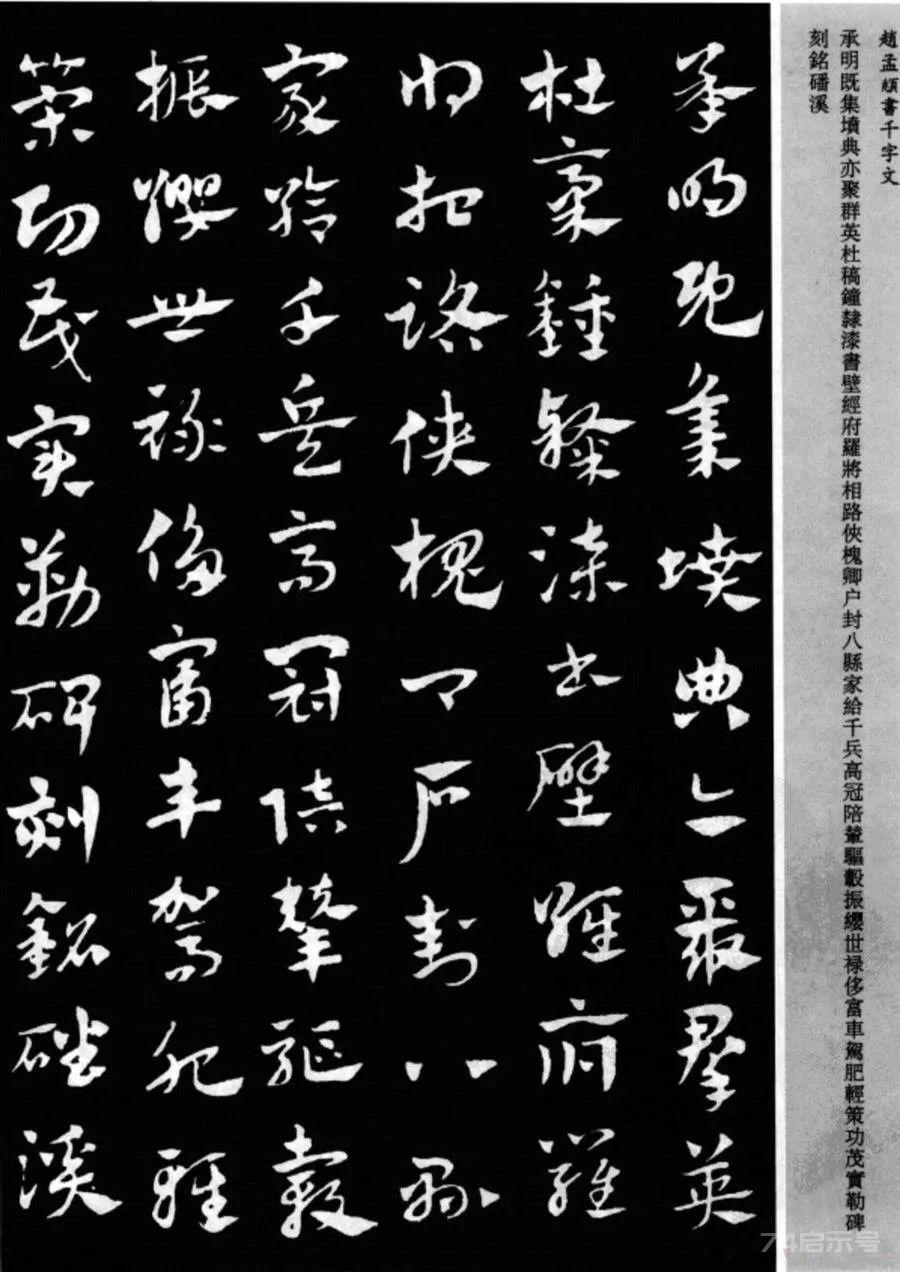 趙孟頫書千字文
承明既集墳典亦聚群英杜稿鐘隸漆書壁經府羅將相路俠槐卿户封八縣家給千兵高冠陪輦驅轂振纓世禄侈富車駕肥輕策功茂實勒碑
刻銘磻溪
承明既集墳典亦聚群英
杜稾鍾隸漆書壁經府羅
將相路俠槐卿户封八縣
家給千兵高冠陪輦驅轂
振纓世禄侈富車駕肥輕
策功茂實勒碑刻銘磻溪
74启示号